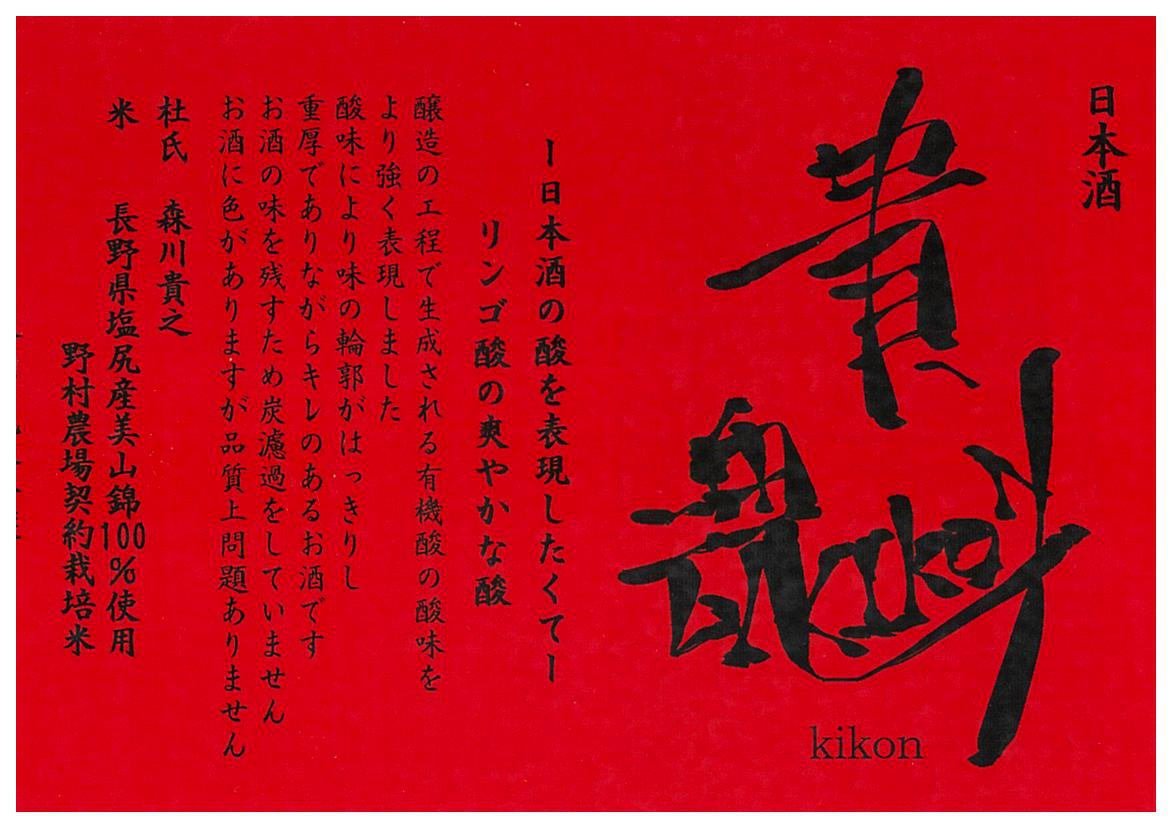 日本酒
貴魂
kikon
ー日本酒の酸を表現したくてー
リンゴ酸の爽やかな酸
醸造の工程で生成される有機酸の酸味を
より強く表現しました
酸味により味の輪郭がはっきりし
重厚でありながらキレのあるお酒です
お酒の味を残すため炭濾過をしていません
お酒に色がありますが品質上問題ありません
杜氏 森川貴之
米 長野県塩尻産美山錦100%使用
野村農場契約栽培米